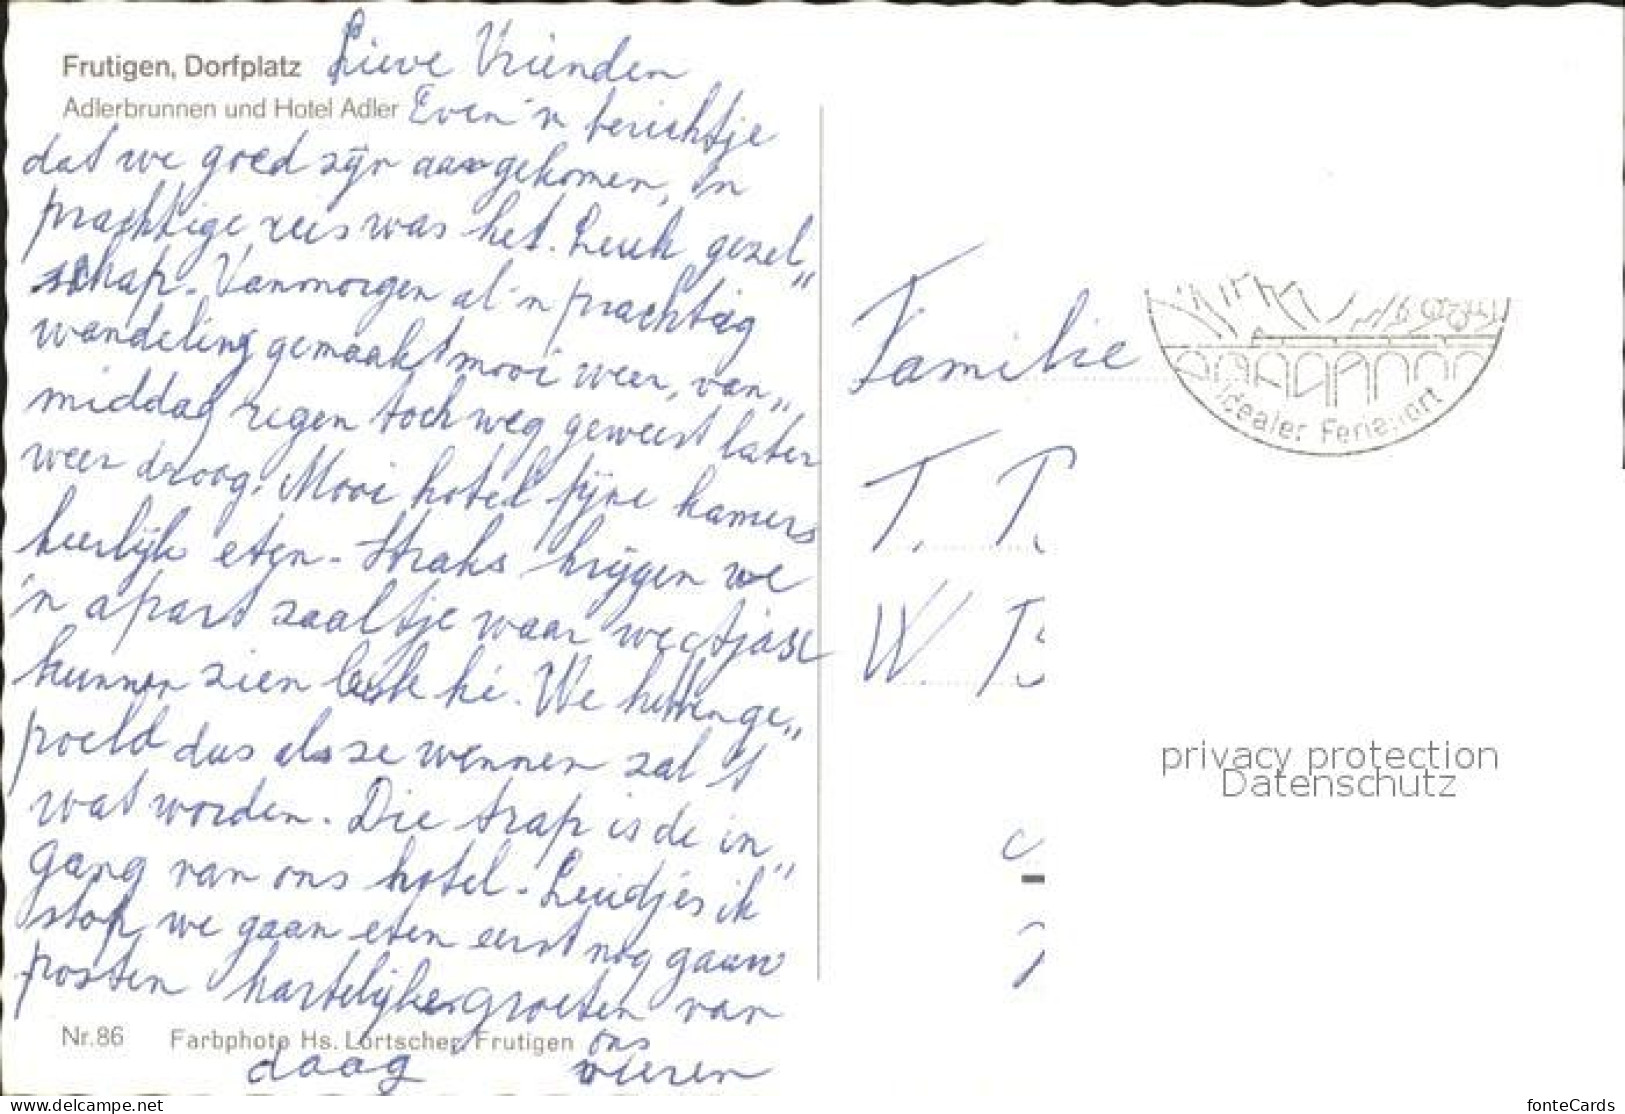 Frutigen, Dorfplatz
Adlerbrunnen und Hotel Adler
Lieve Vrienden
Even 'n berichtje
dat we goed zijn aangekomen, 'n
prachtige reis was het. Leuk gezel„
schap. Vanmorgen al 'n prachtig
wandeling gemaakt mooi weer, van„
middag regen toch weg geweest later
weer droog. Mooi hotel fijne kamers
heerlijk eten - Straks krijgen we
'n apart zaaltje waar we
kunnen zien leuk hé. We hebben ge„
poeld dus als ze wennen zal 't
wat worden. Die trap is de in„
gang van ons hotel. Luidjes ik
stop we gaan eten eerst nog gauw
posten hartelijke groeten van
ons
daag vieren
Nr. 86 Farbphoto Hs. Lörtscher, Frutigen
Familie
T. T.
W.
Idealer Ferienort
privacy protection
Datenschutz
www.delcampe.net
fonteCards